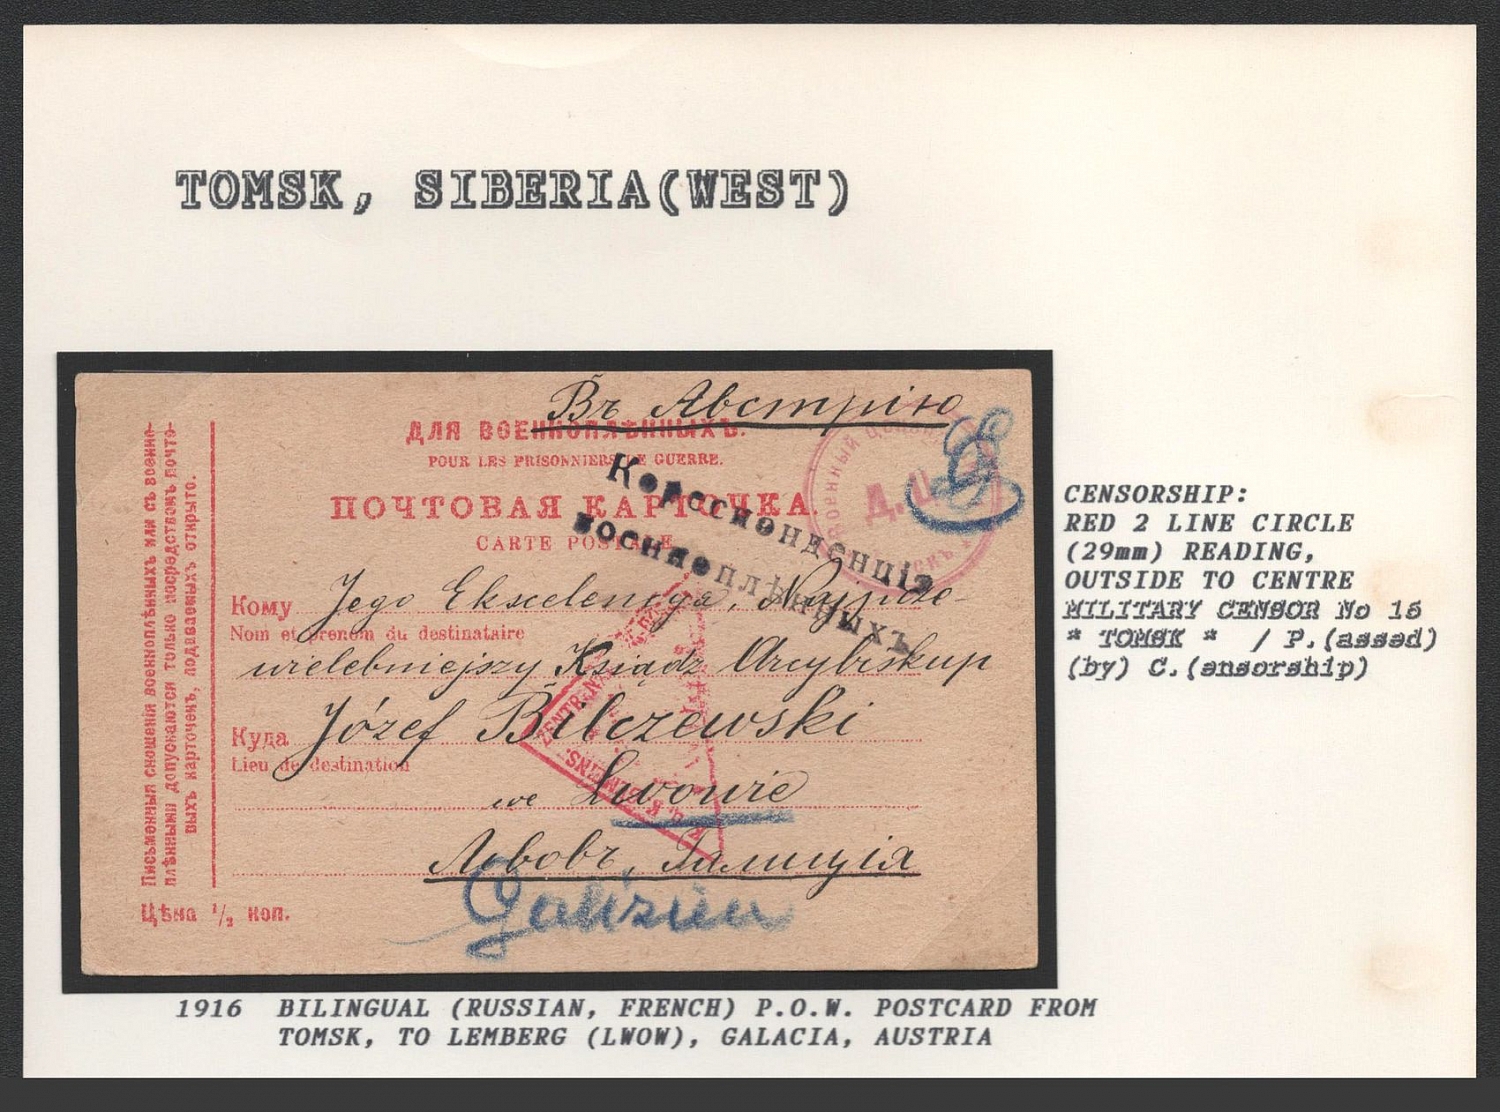 TOMSK, SIBERIA(WEST)
Въ Австрію
ДЛЯ ВОЕННОПЛѢННЫХЪ.
POUR LES PRISONNIERS DE GUERRE.
ПОЧТОВАЯ КАРТОЧКА.
CARTE POSTALE
Корреспонденція
военноплѣнныхъ
Д. Ц.
Кому Jego Ekscelencya, Nayprze-
Nom et prénom du destinataire
wielebniejszy Ksiądz Arcybiskup
Куда Józef Bilczewski
Lieu de destination
we Lwowie
Львовъ, Галиція
Galizien
Письменныя сношенія военноплѣнныхъ или съ военно-
плѣнными допускаются только посредствомъ почто-
выхъ карточекъ, подаваемыхъ открыто.
Цѣна ½ коп.
CENSORSHIP:
RED 2 LINE CIRCLE
(29mm) READING,
OUTSIDE TO CENTRE
MILITARY CENSOR No 15
* TOMSK * / P.(assed)
(by) C.(ensorship)
1916 BILINGUAL (RUSSIAN, FRENCH) P.O.W. POSTCARD FROM
TOMSK, TO LEMBERG (LWOW), GALACIA, AUSTRIA